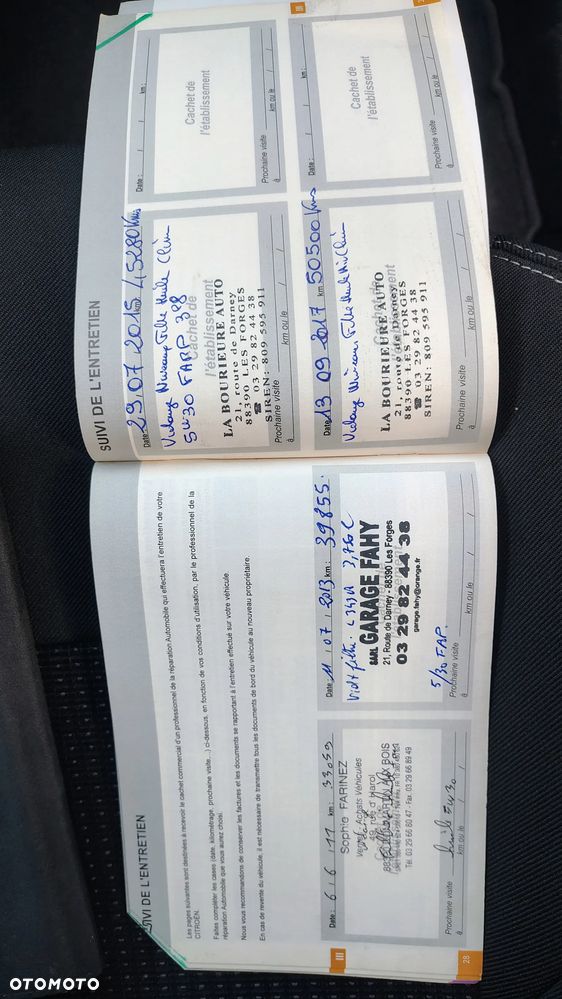 SUIVI DE L'ENTRETIEN
Les pages suivantes sont destinées à recevoir le cachet commercial d'un professionnel de la réparation Automobile qui effectuera l'entretien de votre
CITROËN.
Faites compléter les cases (date, kilométrage, prochaine visite...) ci-dessous, en fonction de vos conditions d'utilisation, par le professionnel de la
réparation Automobile que vous aurez choisi.
Nous vous recommandons de conserver les factures et les documents se rapportant à l'entretien effectué sur votre véhicule.
En cas de revente du véhicule, il est nécessaire de transmettre tous les documents de bord du véhicule au nouveau propriétaire.
III
Date : 6 / 6 / 11 km : 33059
Sophie FARINEZ
Achats Véhicules
49, rue d'Harol
AUX BOIS
Tél. 03 29 66 80 47 - Fax. 03 29 66 89 49
Prochaine visite
à km ou le / /
5W30
Date : 11 / 07 / 2013 km : 39855
SARL GARAGE FAHY
21, Route de Darney - 88390 Les Forges
03 29 82 44 38
garage.fahy@orange.fr
5/30 FAP.
Prochaine visite
à km ou le / /
28
SUIVI DE L'ENTRETIEN
Date : 29.07.2015 45280 Kms
Vidange
5W30 FARP
Cachet de
l'établissement
LA BOURIEURE AUTO
21, route de Darney
88390 LES FORGES
☎ 03 29 82 44 38
SIREN: 809 595 911
Prochaine visite
à km ou le / /
Date : / / km :
Cachet de
l'établissement
Prochaine visite
à km ou le / /
III
Date : 13 09 2017 km : 50500 Kms
Vidange
LA BOURIEURE AUTO
21, route de Darney
88390 LES FORGES
☎ 03 29 82 44 38
SIREN: 809 595 911
Prochaine visite
à km ou le / /
Date : / / km :
Cachet de
l'établissement
Prochaine visite
à km ou le / /
OTOMOTO